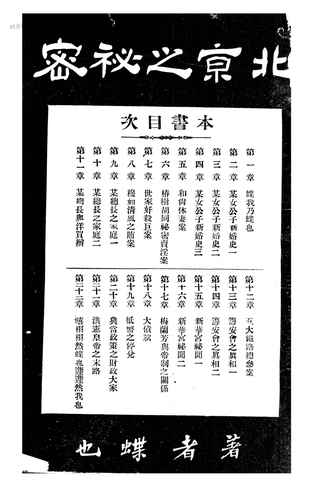 北京之祕密
本書目次
第一章 蝶我乃蝶也
第二章 某女公子新婚史一
第三章 某女公子新婚史二
第四章 某女公子新婚史三
第五章 和尙休妻案
第六章 椿樹胡同祕密賣淫案
第七章 世家好殺巨案
第八章 穆如淸風之賄案
第九章 某總長之家庭一
第十章 某總長之家庭二
第十一章 某總長與洋買辦
第十二章 五大鐵路總參案
第十三章 籌安會之眞相一
第十四章 籌安會之眞相二
第十五章 新華宮祕聞一
第十六章 新華宮祕聞二
第十七章 梅蘭芳與帝制之關係
第十八章 大偵獄
第十九章 紙幣之停兌
第二十章 糞當政策之財政大家
第二十一章 洪憲皇帝之末路
第二十二章 栩栩然蝶也蘧蘧然我也
著者蝶也